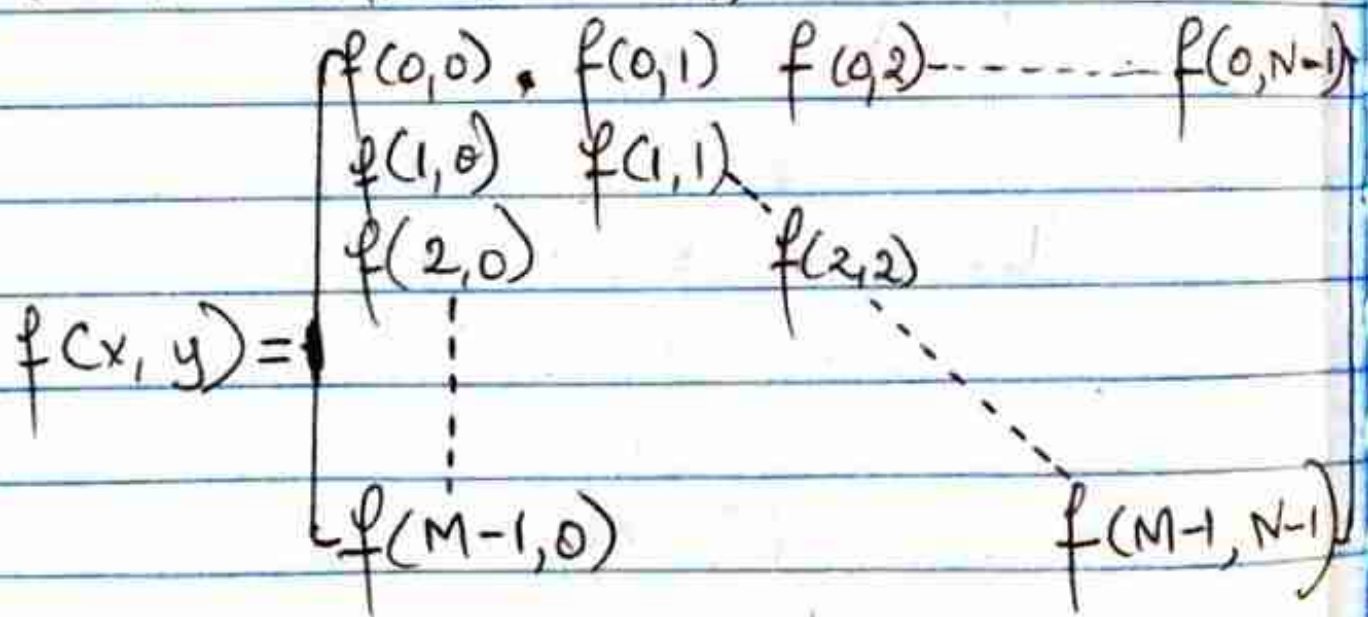 f(0,0) . f(0,1) f(0,2)----------f(0,N-1)
f(1,0) f(1,1)
f(2,0) f(2,2)
f(x, y) =
f(M-1,0) f(M-1, N-1)